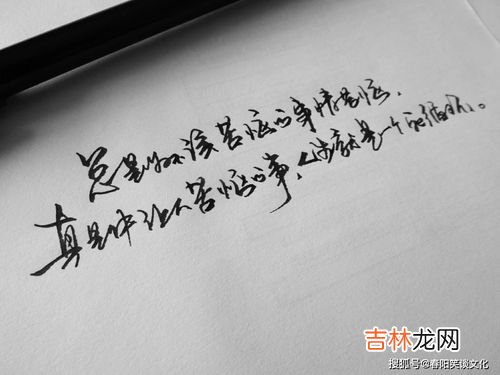 总是为不该苦恼的事情苦恼,
真是件让人苦恼的事,人就是一个死循环。
吉林龙网
搜狐号@春阳笑谈文化